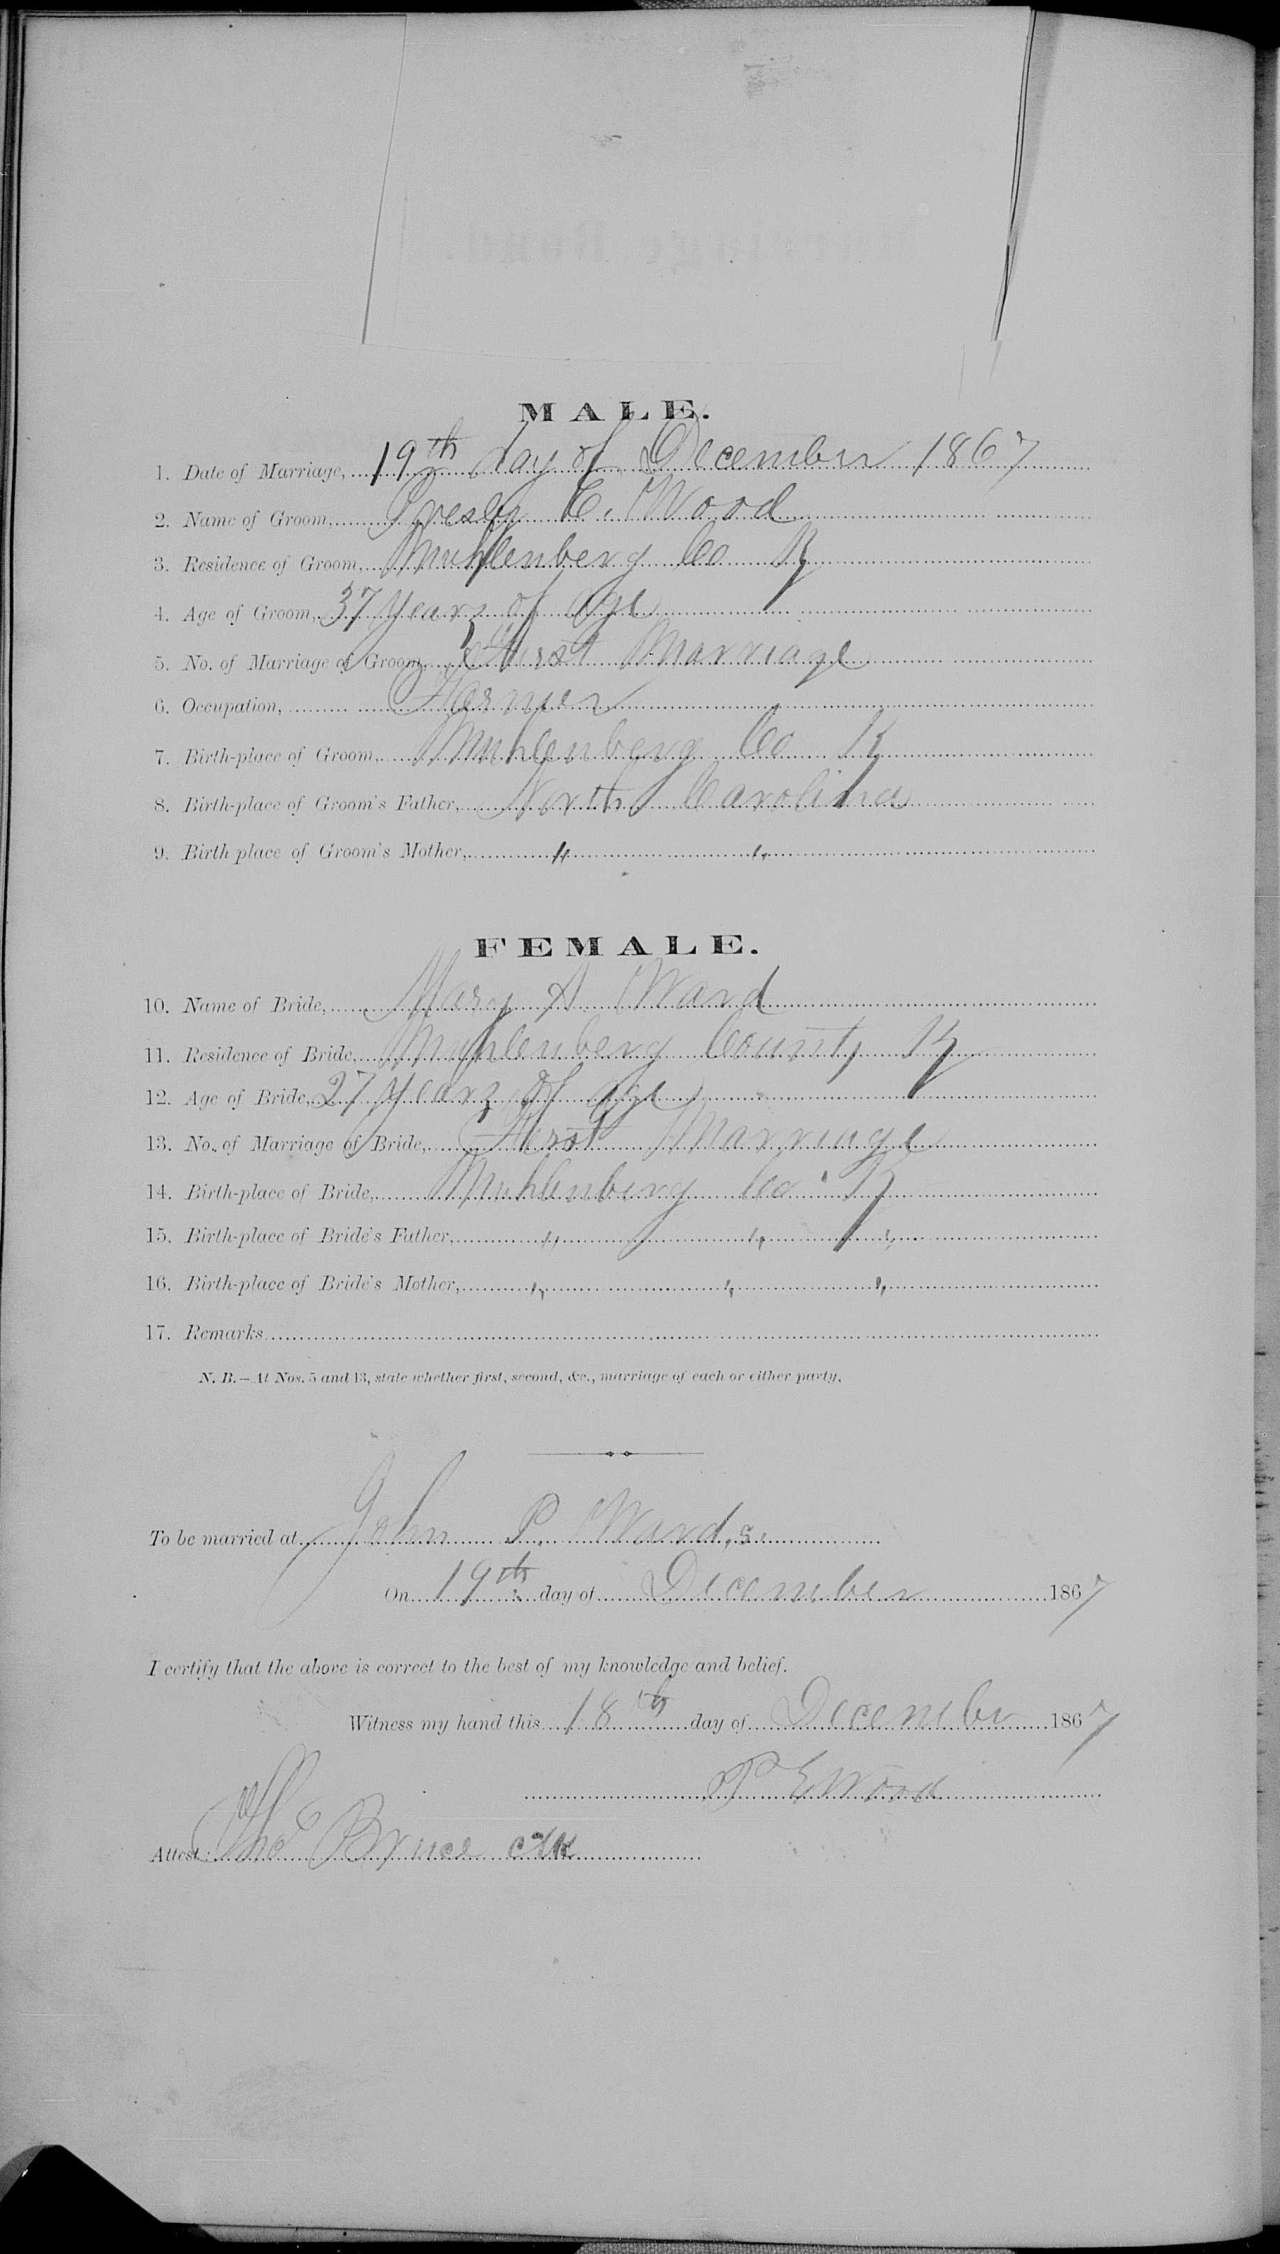 MALE.
1. Date of Marriage, 19th day of December 1867
2. Name of Groom, Presley E. Wood
3. Residence of Groom, Muhlenberg Co Ky
4. Age of Groom, 37 years of age
5. No. of Marriage of Groom, First Marriage
6. Occupation, Farmer
7. Birth-place of Groom, Muhlenberg Co Ky
8. Birth-place of Groom's Father, North Carolina
9. Birth place of Groom's Mother, " "
FEMALE.
10. Name of Bride, Mary A Ward
11. Residence of Bride, Muhlenberg County Ky
12. Age of Bride, 27 years of age
13. No. of Marriage of Bride, First Marriage
14. Birth-place of Bride, Muhlenberg Co Ky
15. Birth-place of Bride's Father, " " "
16. Birth-place of Bride's Mother, " " "
17. Remarks
N. B.—At Nos. 5 and 13, state whether first, second, &c., marriage of each or either party.
To be married at John P. Ward,s.
On 19th day of December 1867
I certify that the above is correct to the best of my knowledge and belief.
Witness my hand this 18th day of December 1867
P E Wood
Attest: Tho Bruce clk